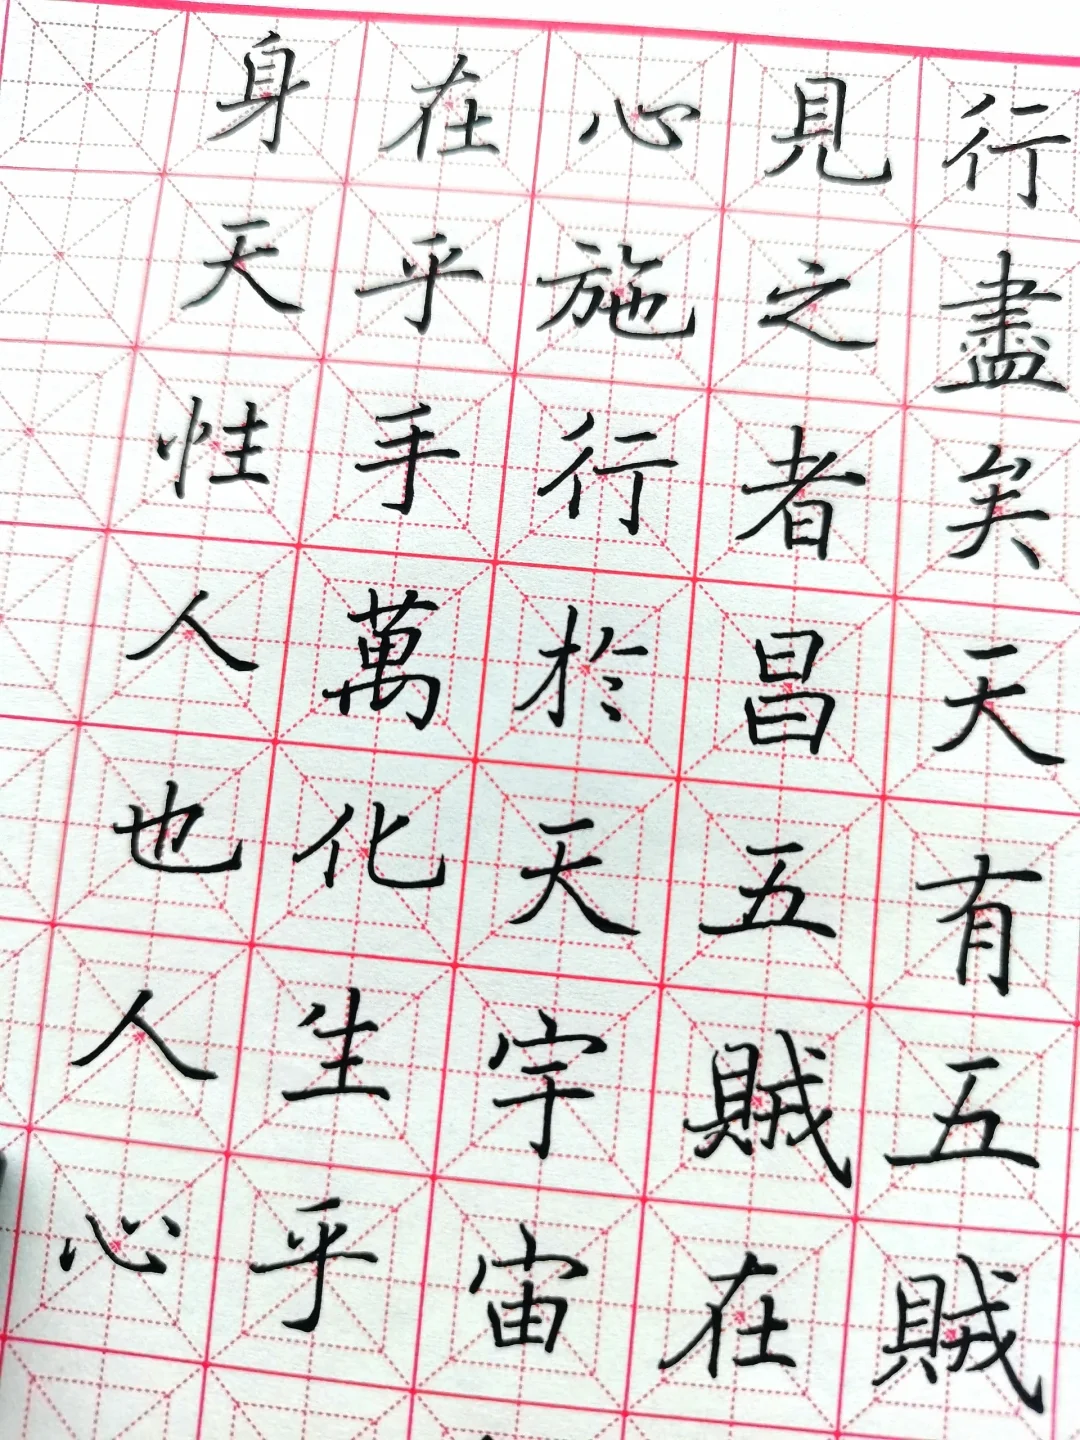 行盡矣天有五賊
見之者昌五賊在
心施行於天宇宙
在乎手萬化生乎
身天性人也人心